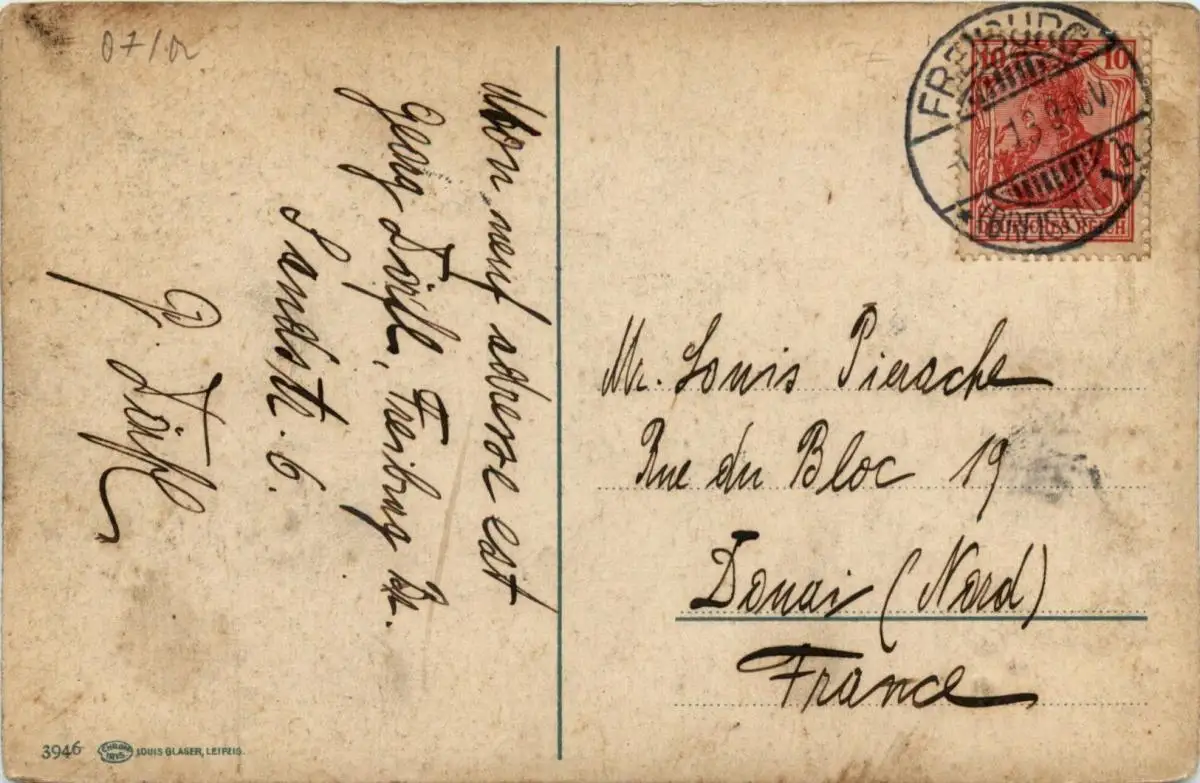 07/02
Mon neuf adresse est
Georg Döpfl, Freiburg Br.
Sandstr. 6.
G. Döpfl
FREIBURG
10 10
13 9-10V
(BREISGAU)
DEUTSCHES REICH
Mr. Louis Pierache
Rue du Bloc 19
Douai (Nord)
France
3946 LOUIS GLASER, LEIPZIG.